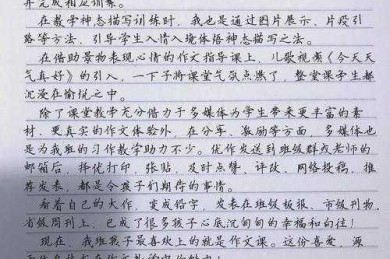 并完成相应训练。
在教学神态描写训练时，我也是通过图片展示、片段引
路等方法，引导学生入情入境体悟神态描写之法。
在借助景物表现心情的作文指导课上，儿歌视频《今天天
气真好》的引入，一下子将课堂气氛点燃了，整堂课学生都
沉浸在愉悦之中。
除了课堂教学充分借力于多媒体为学生带来更丰富的素
材、更真实的写作体验外，在分享、激励等方面，多媒体也
是为我班的习作教学助力不少。优作发送到班级群或老师的
邮箱后，择优打印，张贴，及时点赞、评改，网络投稿，推
荐发表，都是令孩子们期待的事情。
看着自己的大作，变成铅字，发表在班级板报、市级刊物、
省级周刊上，已成了很多孩子心底沉甸甸的幸福和向往！
现在，我班孩子最喜欢上的就是作文课。这份喜爱，源